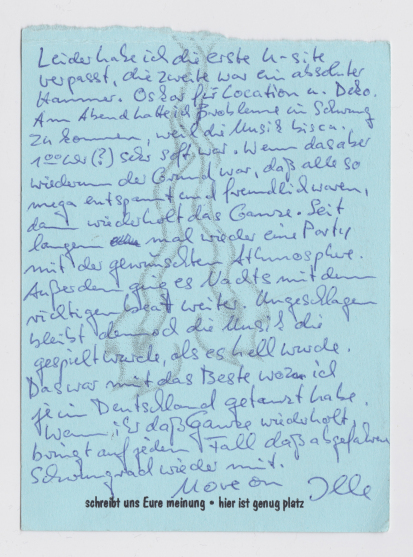 Leider habe ich die erste U-site
verpasst, die zweite war ein absoluter
Hammer. Oskar für Location u. Deko.
Am Abend hatte ich Probleme in Schwung
zu kommen, weil die Musik bis ca.
1°° Uhr (?) sehr soft war. Wenn das aber
wiederum der Grund war, daß alle so
mega entspannt und freundlich waren,
dann wiederholt das Ganze. Seit
langem mal wieder eine Party
mit der gewünschten Athmosphre.
Außerdem ging es Nachts mit dem
richtigen beat weiter. Ungeschlagen
bleibt dennoch die Musik die
gespielt wurde, als es hell wurde.
Das war mit das Beste wozu ich
je in Deutschland getanzt habe.
Wenn ihr daß Ganze wiederholt,
bringt auf jeden Fall daß abgefahrene
Schwungrad wieder mit.
Move on Jlle
schreibt uns Eure meinung • hier ist genug platz